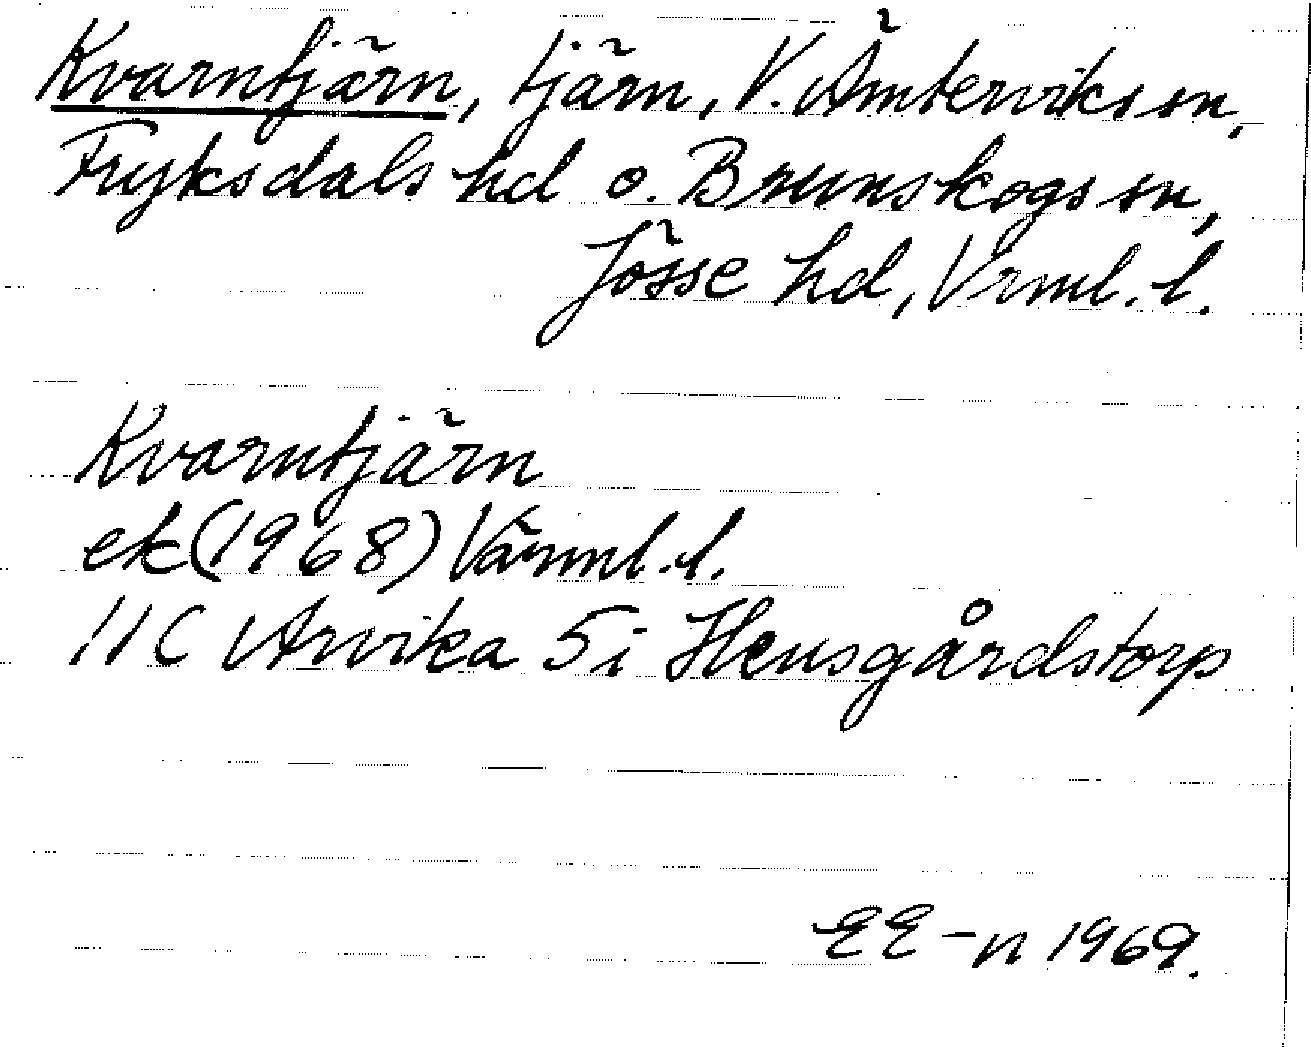 Kvarntjärn, tjärn, V. Ämterviks sn,
Fryksdals hd o. Brunskogs sn,
Jösse hd, Vrml. l.
Kvarntjärn
ek (1968) Värml. l.
11C Arvika 5i Heusgårdstorp
EE-n 1969.